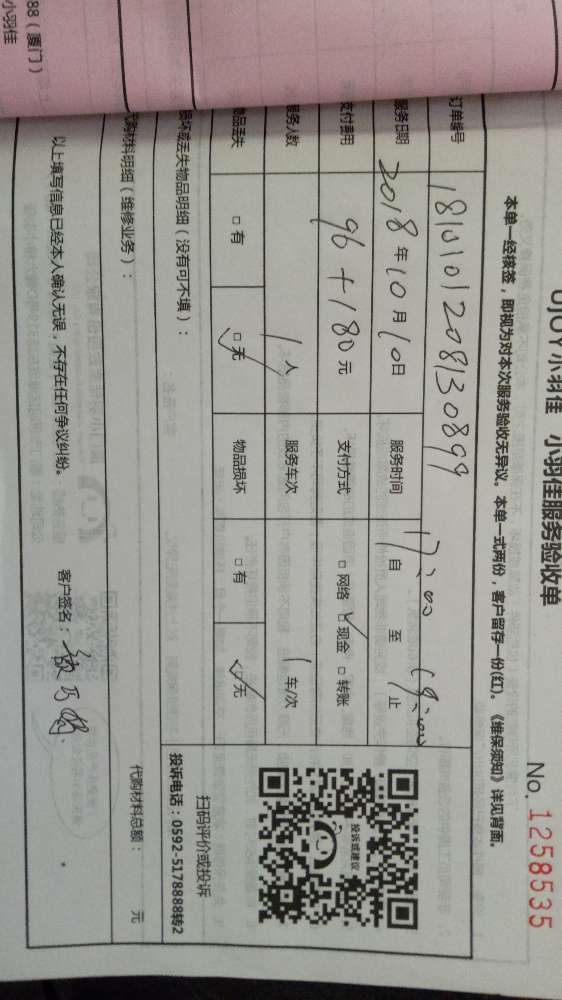 88（厦门）
小羽佳
UJOY小羽佳 小羽佳服务验收单
No. 1258535
本单一经核签，即视为对本次服务验收无异议。本单一式两份，客户留存一份(红)。《维保须知》详见背面。
订单编号 18101012081308 99
服务日期 2018年10月10日 服务时间 17:00 自 至 19:00 止
支付费用 96+180元 支付方式 □网络 ☑现金 □转账
服务人数 1人 服务车次 1车/次
物品丢失 □有 ☑无 物品损坏 □有 ☑无
投诉或建议
扫码评价或投诉
投诉电话：0592-5178888转2
损坏或丢失物品明细（没有可不填）：
代购材料明细（维修业务）： 代购材料总额： 元
以上填写信息已经本人确认无误，不存在任何争议纠纷。 客户签名：